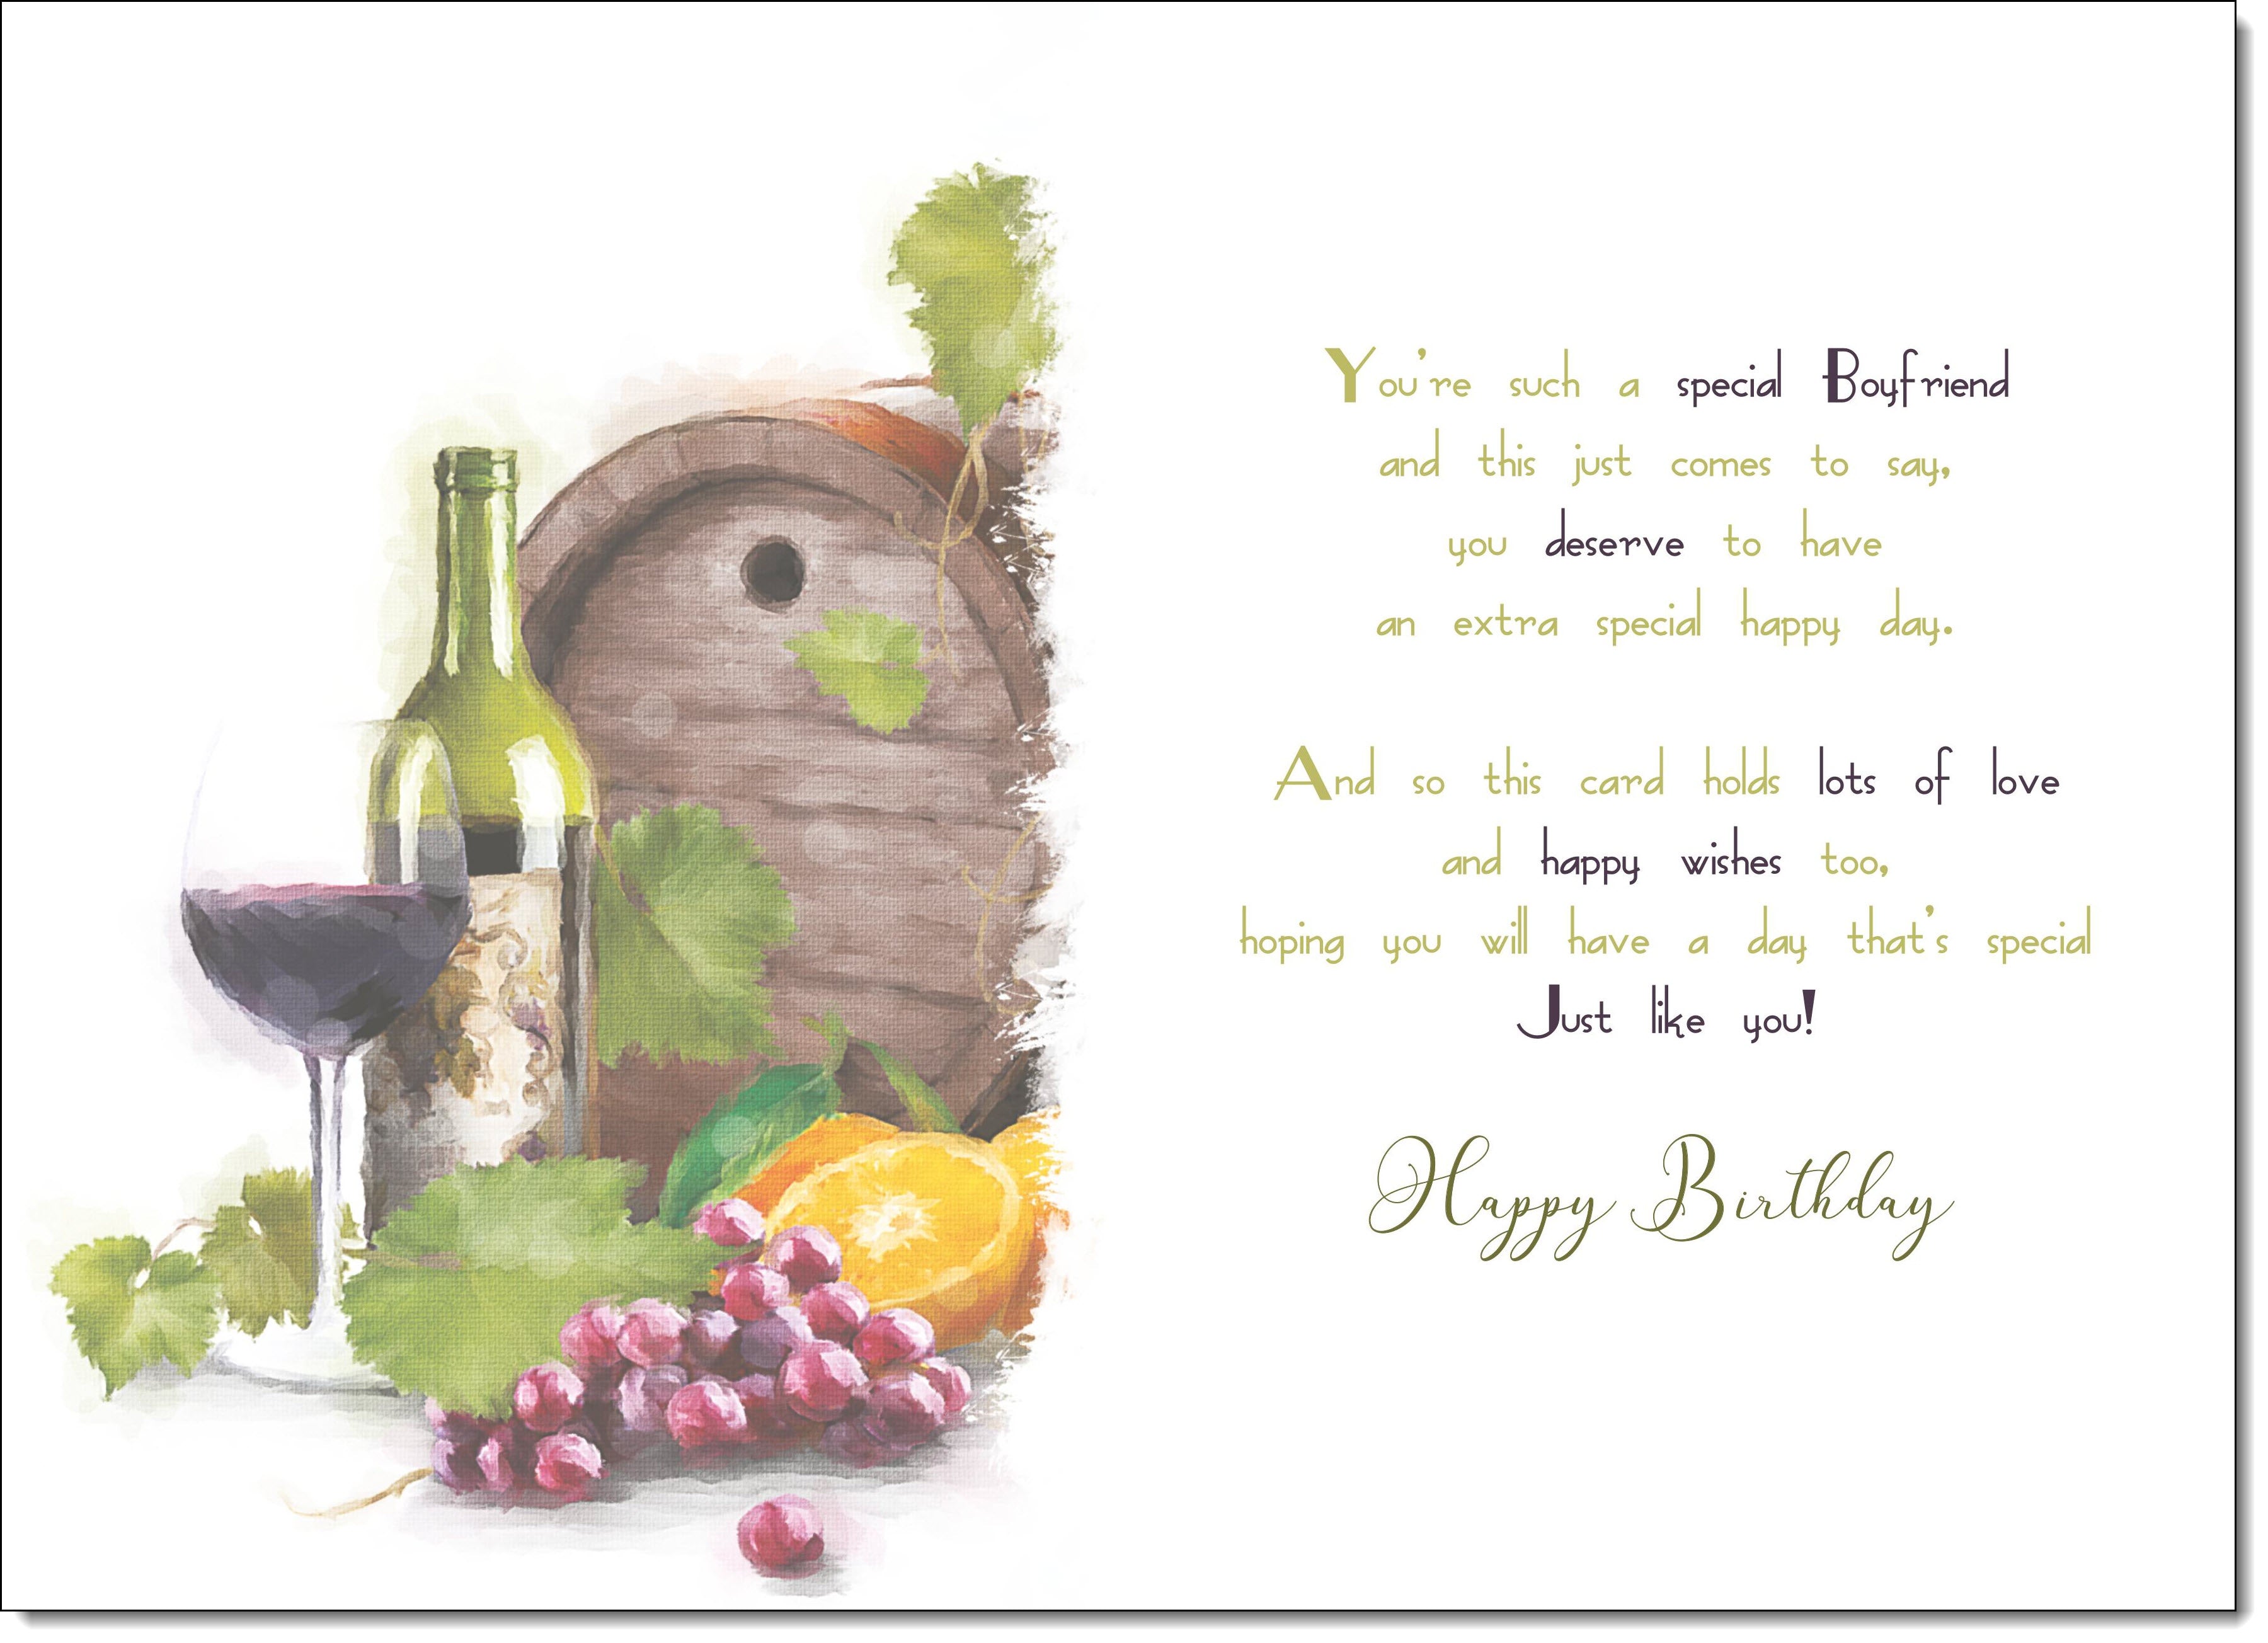 You're such a special Boyfriend
and this just comes to say,
you deserve to have
an extra special happy day.
And so this card holds lots of love
and happy wishes too,
hoping you will have a day that's special
Just like you!
Happy Birthday